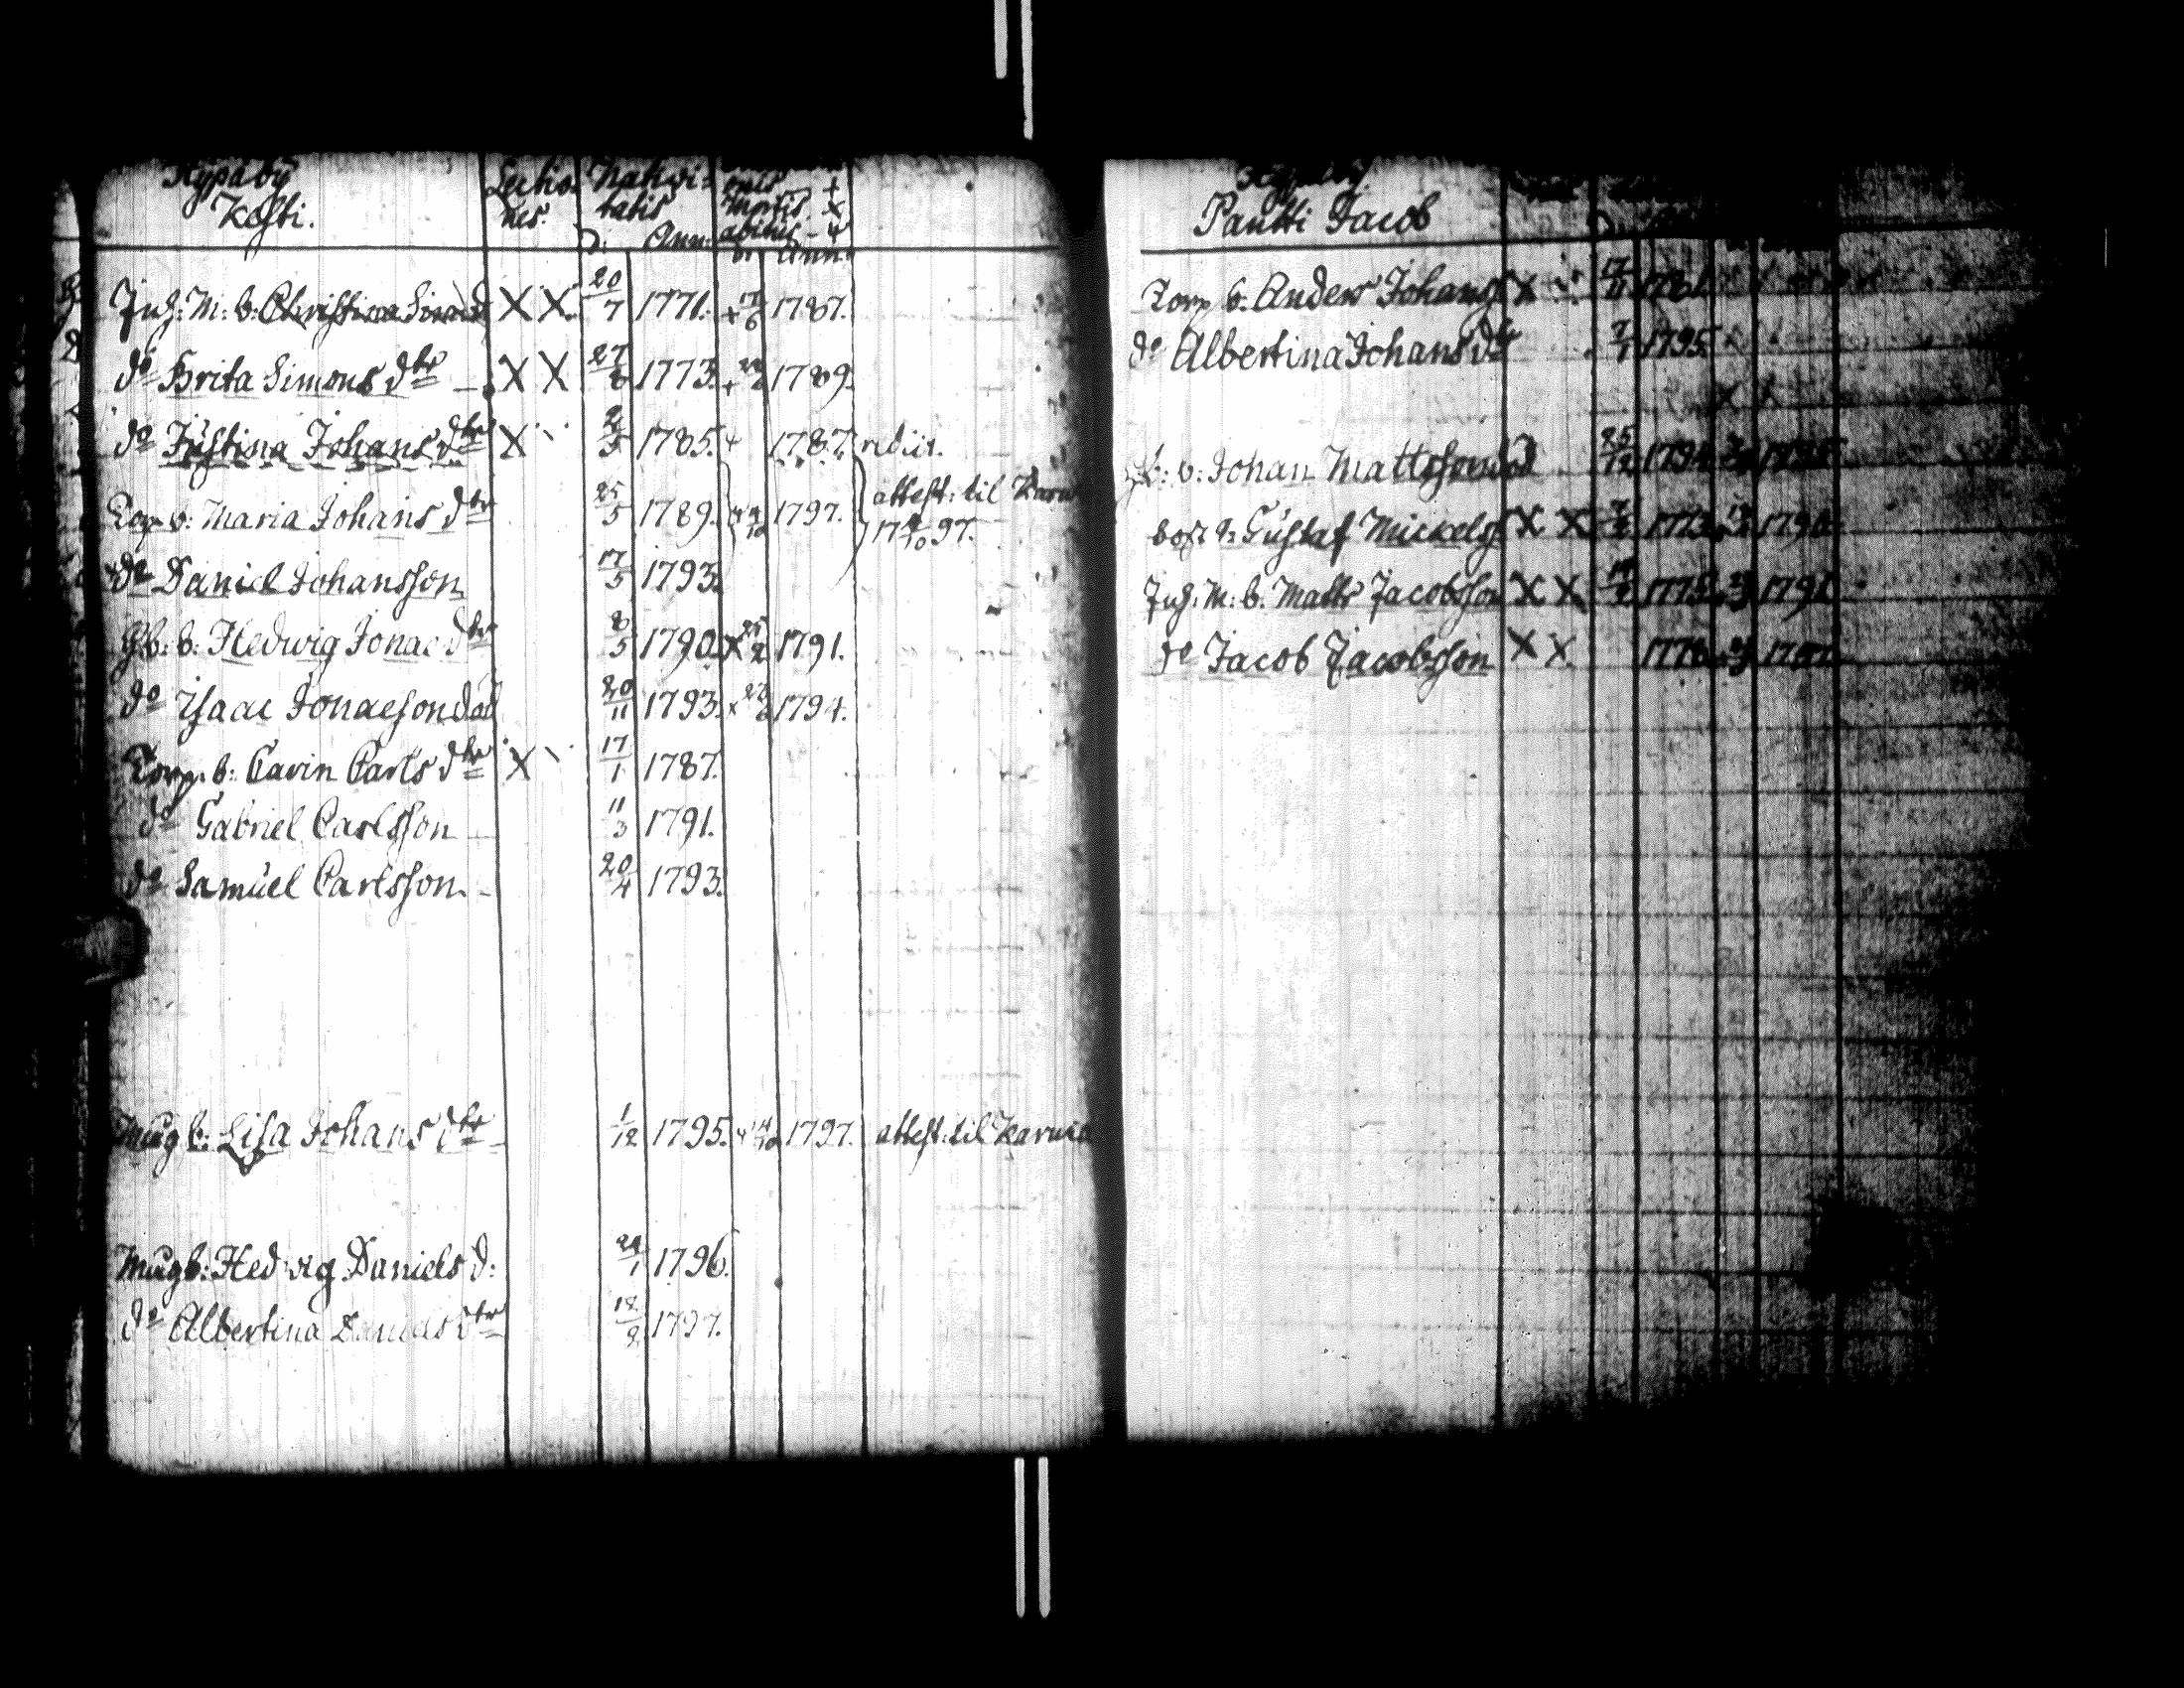 Kypäby
Kesti.
Lectio-
nes.
Nativi-
tatis
D. Ann:
onis +
Mortis X
abitus
D. Ann.
Inh: M: b: Christina Sim d X X. 20/7 1771. + 17/6 1787.
do Brita Simons dtr X X 27/8 1773. + 1789.
do Justina Johans dtr X 2/5 1785. + 1787. rediit.
Torp b: Maria Johans dtr 25/5 1789. 4/10 1797. attest: til
17 4/10 97.
do Daniel Johansson 17/5 1793.
b: Hedwig Jonae dtr 8/5 1790. X 25/2 1791.
do Isaac Jonaeson död 20/11 1793. x 1794.
Torp. b: Carin Carls dtr X 17/1 1787.
do Gabriel Carlsson 11/3 1791.
do Samuel Carlsson. 20/4 1793.
Mugb: Lisa Johans dtr 1/12 1795. 4/10 1797. attest: til Karvia
Mugb: Hedvig Daniels d: 24/1 1796.
do Albertina Daniels dtr 18/2 1797.
Pantti Jacob
Torp b. Anders Johans X 17/11
do Albertina Johans dtr 7/1 1795.
b: Johan Mattsson död 25/12 1794
Gustaf Mickels X X 1773 1790
Inh: M: b. Matts Jacobsson X X 1775 1791
do Jacob Jacobsson X X. 1778 1787